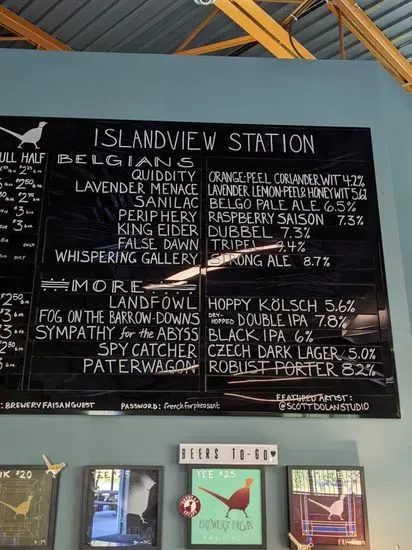 ISLANDVIEW STATION
ULL HALF
BELGIANS
QUIDDITY ORANGE-PEEL CORIANDER WIT 4.2%
LAVENDER MENACE LAVENDER LEMON-PEEL & HONEY WIT 5.6%
SANILAC BELGO PALE ALE 6.5%
PERIPHERY RASPBERRY SAISON 7.3%
KING EIDER DUBBEL 7.3%
FALSE DAWN TRIPEL 9.4%
WHISPERING GALLERY STRONG ALE 8.7%
MORE
LANDFOWL HOPPY KÖLSCH 5.6%
FOG ON THE BARROW-DOWNS DRY-HOPPED DOUBLE IPA 7.8%
SYMPATHY for the ABYSS BLACK IPA 6%
SPY CATCHER CZECH DARK LAGER 5.0%
PATERWAGON ROBUST PORTER 8.2%
: BREWERYFAISANGUEST PASSWORD: frenchforpheasant FEATURED ARTIST:
@SCOTTDOLANSTUDIO
BEERS TO-GO
$20
TEE $25
BREWERY FAISAN